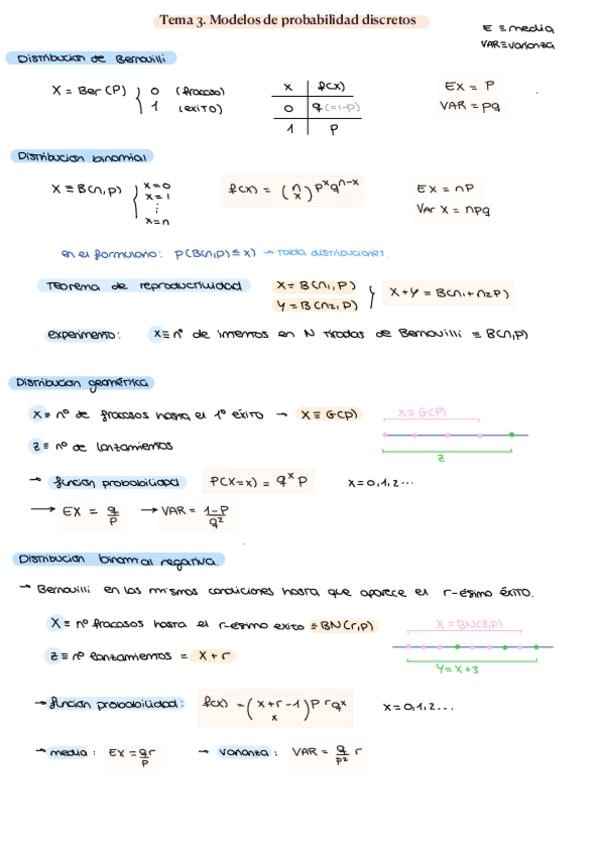 Tema 3. Modelos de probabilidad discretos
E ≡ media
VAR ≡ varianza
Distribución de Bernouilli
X = Ber (P) { 0 (fracaso)
1 (éxito)
x | f(x)
0 | q (=1-p)
1 | P
EX = P
VAR = pq
Distribución binomial
X ≡ B(n,p) { x=0
x=1
⋮
x=n
f(x) = (n x) p^x q^n-x
EX = np
Var X = npq
en el formulario: P(B(n,p) ≤ x) → Tabla distribuciones.
Teorema de reproductividad
X = B(n1, P)
Y = B(n2, P)
} X+Y = B(n1+n2 P)
experimento: X ≡ nº de intentos en N tiradas de Bernouilli ≡ B(n,p)
Distribución geométrica
X ≡ nº de fracasos hasta el 1º éxito → X ≡ G(p)
X ≡ G(P)
Z ≡ nº de lanzamientos
Z
→ función probabilidad P(X=x) = q^x p x=0,1,2...
→ EX = q/p → VAR = 1-P/q²
Distribución binomial negativa.
→ Bernouilli en las mismas condiciones hasta que aparece el r-ésimo éxito.
X ≡ nº fracasos hasta el r-esimo exito ≡ BN(r,p)
X ≡ BN(3,p)
Z ≡ nº lanzamientos = X + r
Y = X + 3
→ función probabilidad: f(x) = (x+r-1 x) p^r q^x x=0,1,2...
→ media: EX = qr/p → varianza: VAR = q/p² r